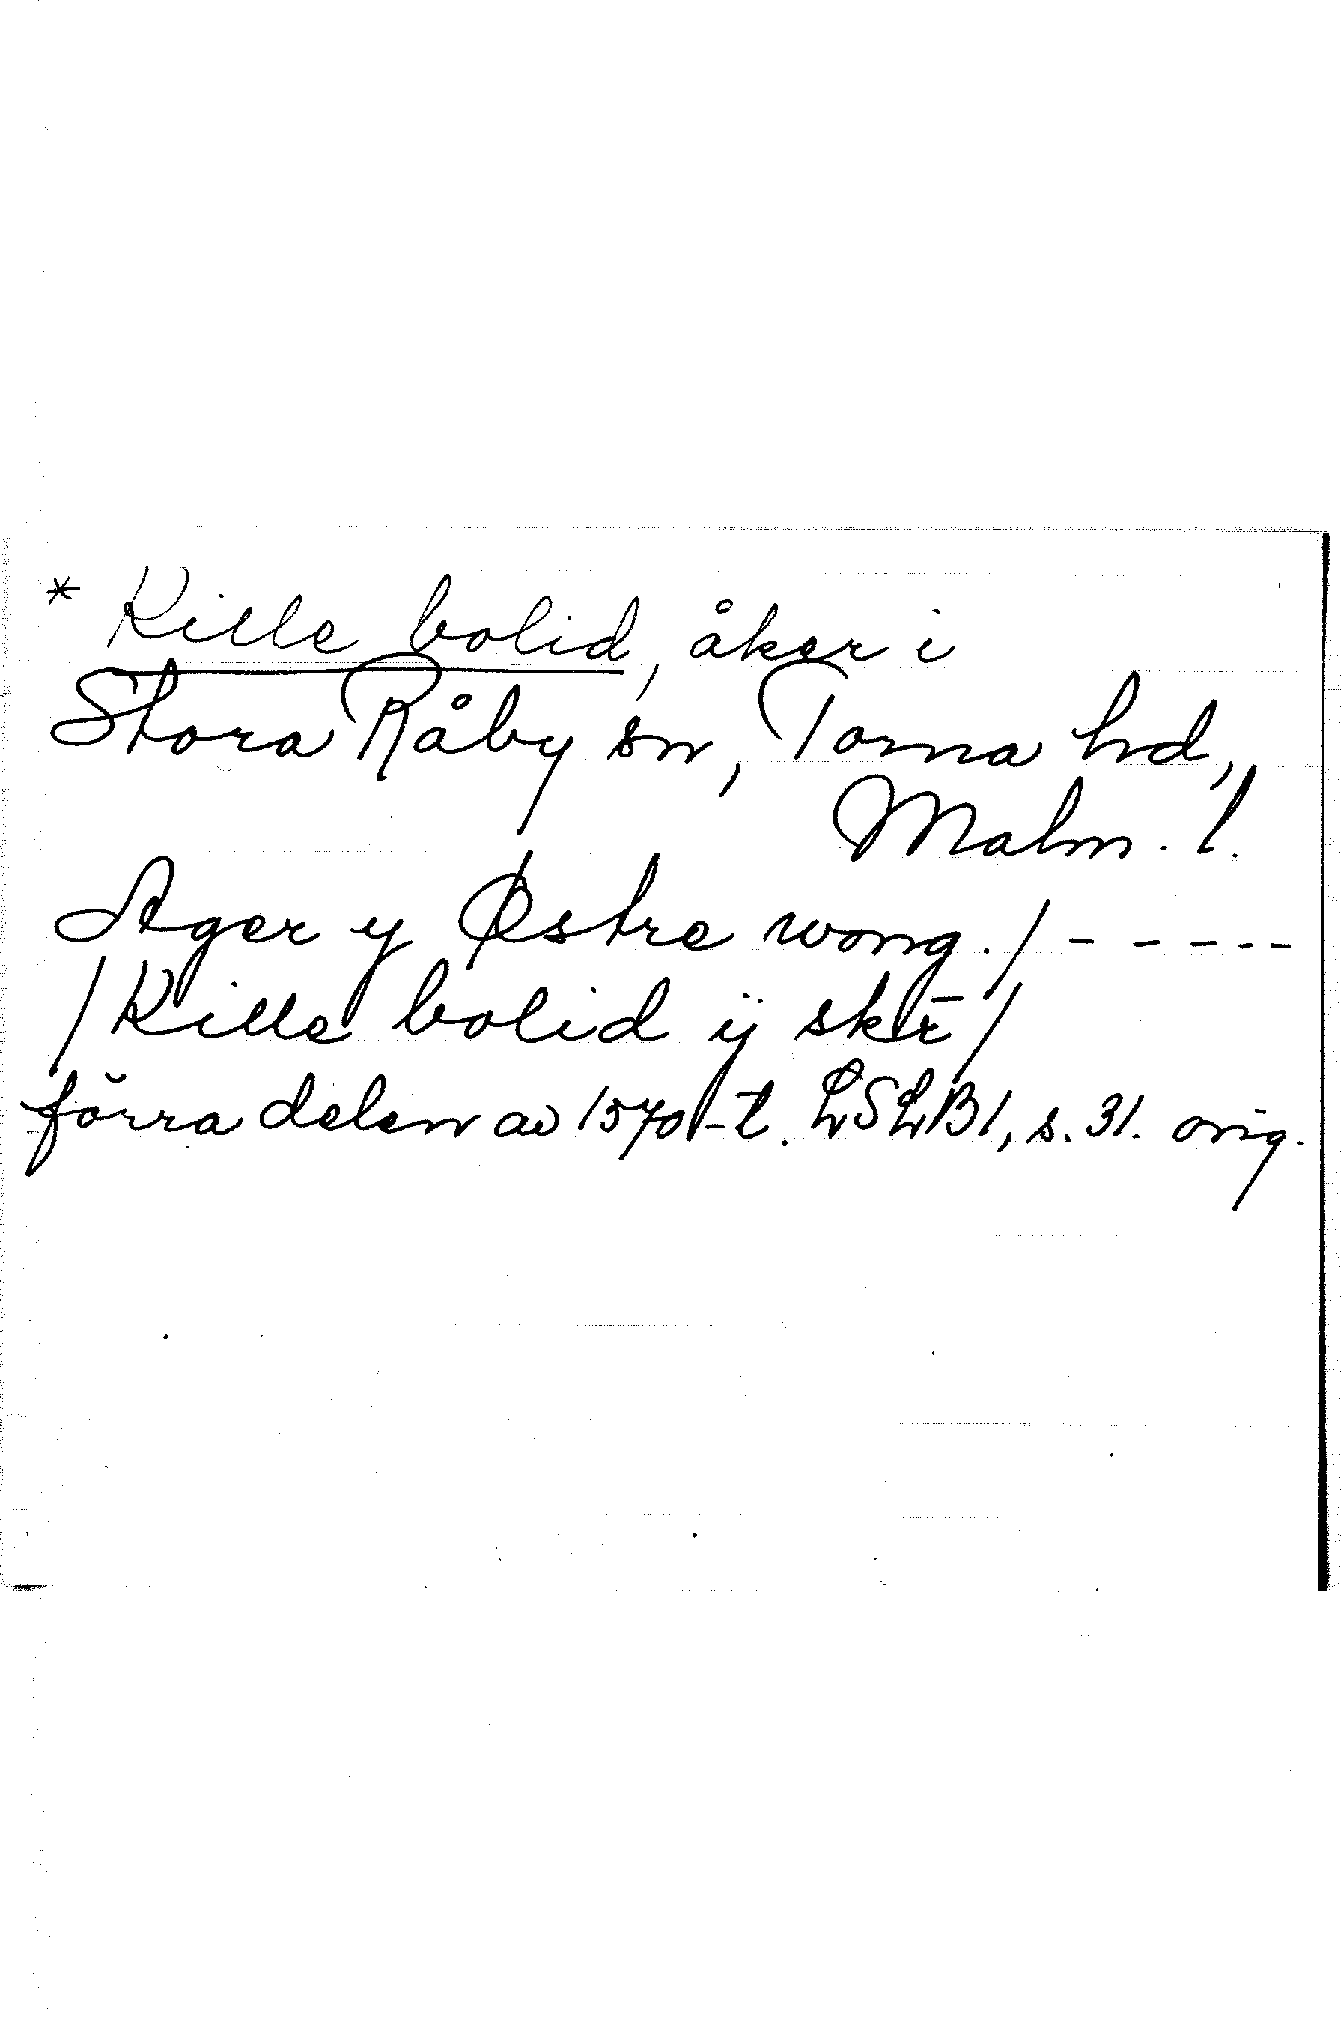 * Kille bolid, åker i
Stora Råby sn, Torna hd,
Malm. l.
Ager y Østre wong. / - - - - -
/ Kille bolid ÿ skr̄ /
förra delen av 1570-t. LSLB1, s. 31. orig.